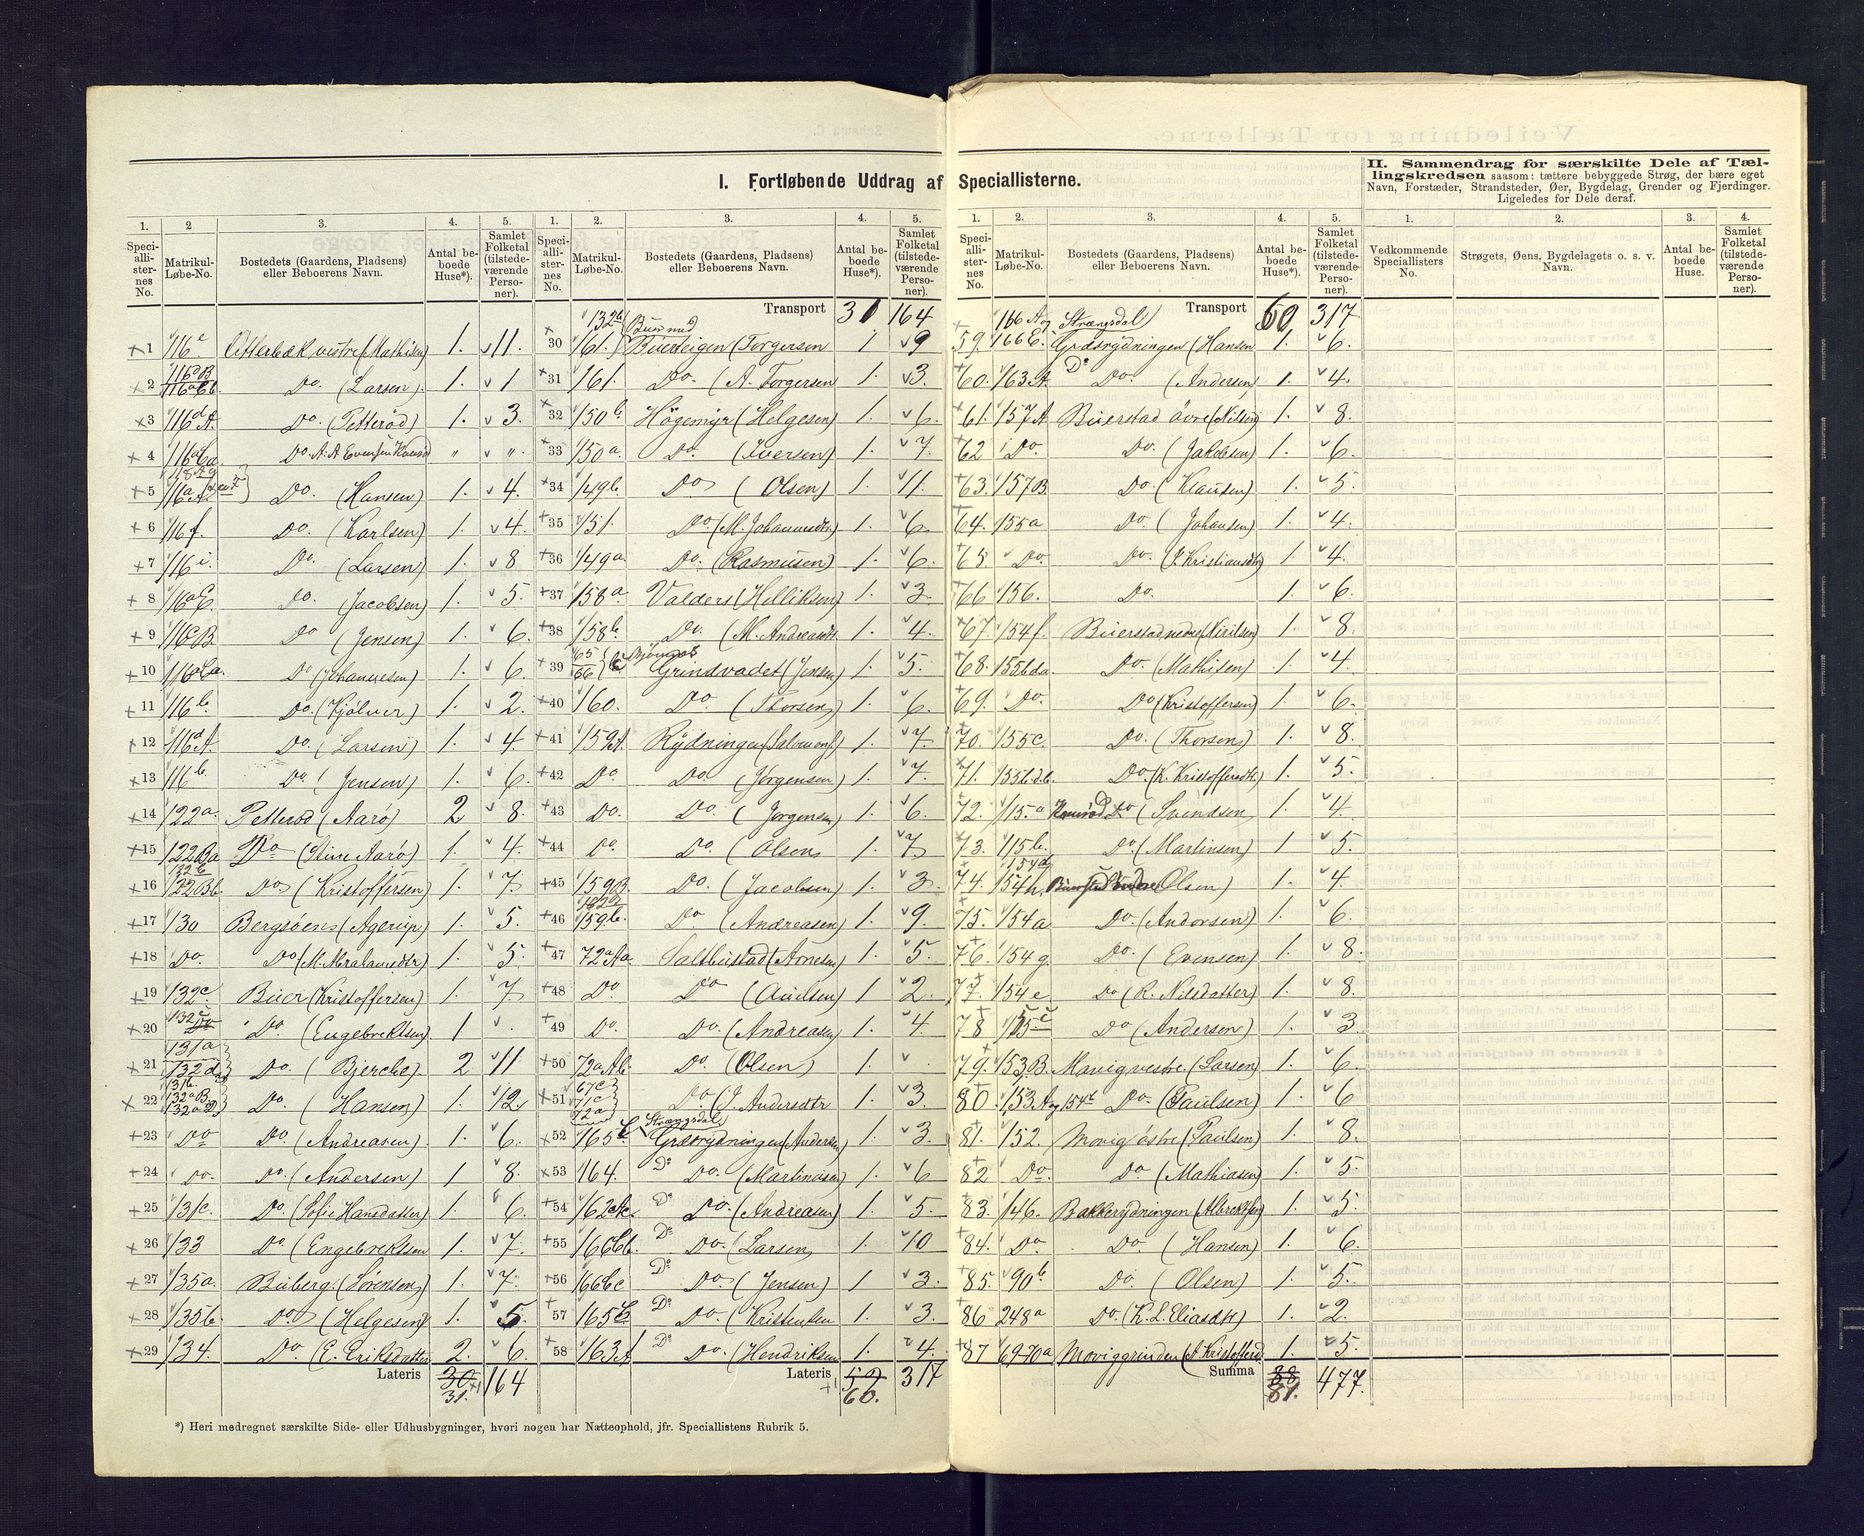 I. Fortløbende Uddrag af Speciallisterne.
1. Speciallisternes No.
2 Matrikul-Løbe-No.
3. Bostedets (Gaardens, Pladsens) eller Beboerens Navn.
4. Antal beboede Huse*).
5. Samlet Folketal (tilstedeværende Personer).
1 116c Otterbæk vestre (Mathisen) 1. 11.
2 Do. (Larsen). 1. 1
3 116d A. Do. (Petterød) 1. 3.
4 116a Ca Do. A. A. Evensen " "
5 Do. (Hansen) 1. 4.
6 116f. Do. (Karlsen) 1. 4.
7 116i. Do. (Larsen) 1. 8
8 116a E Do. (Jacobsen) 1. 5.
9 116c B Do (Jensen) 1. 6.
10 116a Ca. Do (Johannesen) 1. 6.
11 116b. Do. (Kjølner) 1. 2.
12 116d A Do. (Larsen) 1. 4
13 116b. Do (Jensen) 1. 6.
14 122a. Petterød (Aarø) 2 8.
15 122Ba Do (Stine Aarø) 1. 4.
16 122Bb. Do (Kristoffersen) 1. 7.
17 130 Bergsøens (Agerup) 1. 5.
18 Do. Do (M. Abrahamsdtr) 1. 5.
19 132c. Buer (Kristoffersen) 1. 7.
20 132c Do. (Engebrektsen) 1 .
21 131a 132d Do. (Bjercke) 2 11
22 131b. 132a B. 132a D Do. (Hansen) 1. 12.
23 Do Do. (Andreasen) 1. 6.
24 Do. Do. (Andersen) 1 8.
25 131c. Do. (Sofie Hansdatter) 1. 6.
26 133 Do (Engebrektsen 1. 7.
27 135a. Buberg. (Sørensen) 1. 7.
28 135b. Do. (Helgesen) 1. 5.
29 134. Do. (E. Eriksdatter 2. 6.
Lateris 30 31. +1 164
*) Heri medregnet særskilte Side- eller Udhusbygninger, hvori nogen har Natteophold, jfr. Speciallistens Rubrik 5.
1. Speciallisternes No.
2. Matrikul-Løbe-No.
3. Bostedets (Gaardens, Pladsens) eller Beboerens Navn.
4. Antal beboede Huse*).
5. Samlet Folketal (tilstedeværende Personer).
Transport 31 164
30 132a 161. Buerteigen (Torgersen 1 9
31 161. Do. (A. Torgersen 1. 3.
32 150b. Högemyr (Helgesen) 1. 6.
33 150a. Do. (Iversen) 1. 7.
34 149b. Do (Olsen) 1. 11.
35 151. Do. (M. Johannesdtr) 1. 6.
36 149a. Do. (Rasmusen) 1. 6.
37 158a. Valders (Helliksen) 1. 3.
38 158b. Do. (M. Andreasdtr 1. 4.
39 65 66 Grindvadet (Jensen) 1. 5.
40 160. Do. (Thorsen) 1. 6.
41 159A. Rydningen (Salomons.) 1. 7.
42 Do. Do (Jörgensen) 1. 7.
43 Do. Do. (Jörgensen) 1. 6.
44 Do. Do. (Olsen) 1. 7
45 159B. Do. (Jacobsen) 1. 3.
46 159b. Do. (Andreasen) 1. 9.
47 72a Aa. Saltbustad (Arnesen) 1. 5.
48 Do Do (Paulsen) 1 2.
49 Do. Do. (Andreasen) 1. 4.
50 72a Ab. Do. (Olsen) 1. .
51 67c 71c 72a Do. (J. Andersdtr 1. 3.
52 165 Strangsdal Græsrydningen (Andersen 1. 3.
53 164. Do Do. (Martinisen) 1. 6
54 Do Do. (Andreasen) 1. 5.
55 166Cb. Do Do. (Larsen) 1. 10
56 166Cc Do Do. (Jensen) 1 3.
57 165 Do Do. (Kristensen 1. 3.
58 163A Do Do. (Hendriksen 1. 4.
Lateris 59 +1 60. 317
1. Speciallisternes No.
2. Matrikul-Løbe-No.
3. Bostedets (Gaardens, Pladsens) eller Beboerens Navn.
4. Antal beboede Huse*).
5. Samlet Folketal (tilstedeværende Personer).
Transport 60 317
59. 166A og 166C. Strangsdal Græsrydningen (Hansen 1. 6.
60. 163A. Do Do. (Andersen) 1. 4.
61. 157A. Buerstad övre (Nilsen) 1. 8.
62 Do. Do. (Jakobsen) 1. 6.
63. 157B. Do. (Klausen) 1. 5.
64. 155a Do. (Johansen) 1. 4.
65. Do Do. (P. Kristiansdtr) 1. 4.
66 156. Do. 1. 6.
67. 154f. Buerstad nedre (Nirilsen) 1. 8.
68. 155bda. Do. (Mathisen) 1. 4.
69. Do. Do (Kristoffersen) 1. 6.
70. 155c. Do. (Thorsen) 1. 8.
71. 155b db. Do. (K. Kristoffersdtr.) 1. 5.
72. 115a Do (Svendsen 1. 4.
73. 115b. Do. (Martinsen) 1. 5.
74. 154d 154h. (Olsen) 1. 4.
75. 154a Do. (Andorsen) 1. 6.
76. 154g Do. (Evensen) 1. 8.
77. 154e Do (R. Nilsdatter) 1. 8.
78 155c Do (Andersen) 1. 3
79. 153B. Movig vestre. (Larsen) 1. 6.
80. 153A og 154b Do. (Paulsen) 1. 6
81. 152. Movig östre (Paulsen) 1. 8.
82 Do. Do. (Mathiasen) 1. 5.
83. 146. Bakkerydningen (Albrektsen) 1. 5.
84. Do. Do (Hansen) 1. 6.
85. 90b Do. (Olsen) 1. 5.
86 248a Do. (K. L. Eliasdtr) 1. 2.
87 69-70a Moviggrinden (A. Kristoffersd 1. 5.
Summa 88 477.
II. Sammendrag for særskilte Dele af Tællingskredsen saasom: tættere bebyggede Strøg, der bære eget
Navn, Forstæder, Strandsteder, Øer, Bygdelag, Grender og Fjerdinger.
Ligeledes for Dele deraf.
1. Vedkommende Speciallisters No.
2. Strøgets, Øens, Bygdelagets o. s. v. Navn.
3. Antal beboede Huse.
4. Samlet Folketal (tilstedeværende Personer).